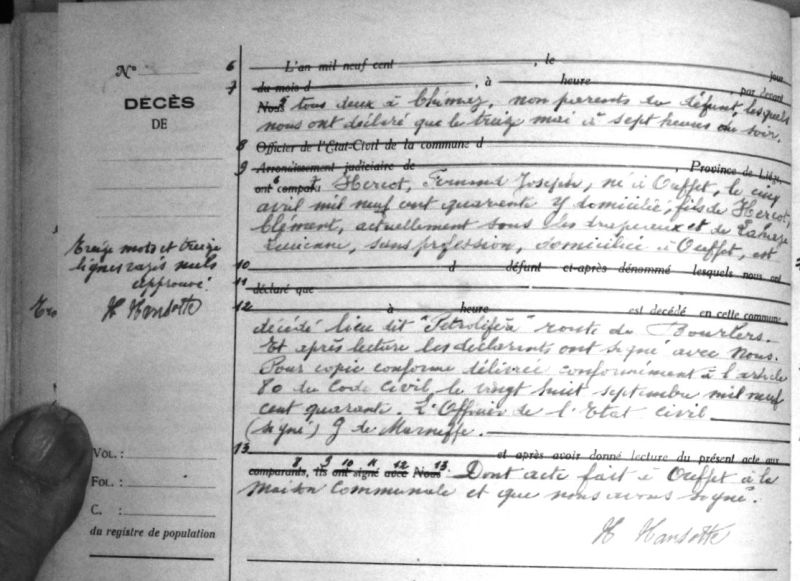 N°
DÉCÈS
DE
Treize mots et treize
lignes rayés nuls
approuvé.
H Hansotte
VOL. :
FOL. :
C. :
du registre de population
6 L'an mil neuf cent , le jour
7 du mois d , à heure par devant
Nous tous deux à Chimay, non parents du défunt, lesquels
nous ont déclaré que le treize mai à sept heures du soir,
8 Officier de l'Etat-Civil de la commune d
9 Arrondissement judiciaire de , Province de Liége,
ont comparu Hercot, Fernand Joseph, né à Ouffet, le cinq
avril mil neuf cent quarante y domicilié, fils de Hercot,
Clément, actuellement sous les drapeaux et de
Lucienne, sans profession, domiciliée à Ouffet, est
10 d défunt ci-après dénommé lesquels nous ont
11 déclaré que
12 à heure est décédé en cette commune
décédé lieu dit "Petrolifèra" route de Bourlers.
Et après lecture les déclarants ont signé avec Nous.
Pour copie conforme délivrée conformément à l'article
80 du Code Civil, le vingt huit septembre mil neuf
cent quarante. L'Officier de l'Etat Civil
(signé) G de Marneffe.
13 et après avoir donné lecture du présent acte aux
comparants, ils ont signé avec Nous. 8 9 10 11 12 13 Dont acte fait à Ouffet à la
Maison Communale et que nous avons signé.
H Hansotte